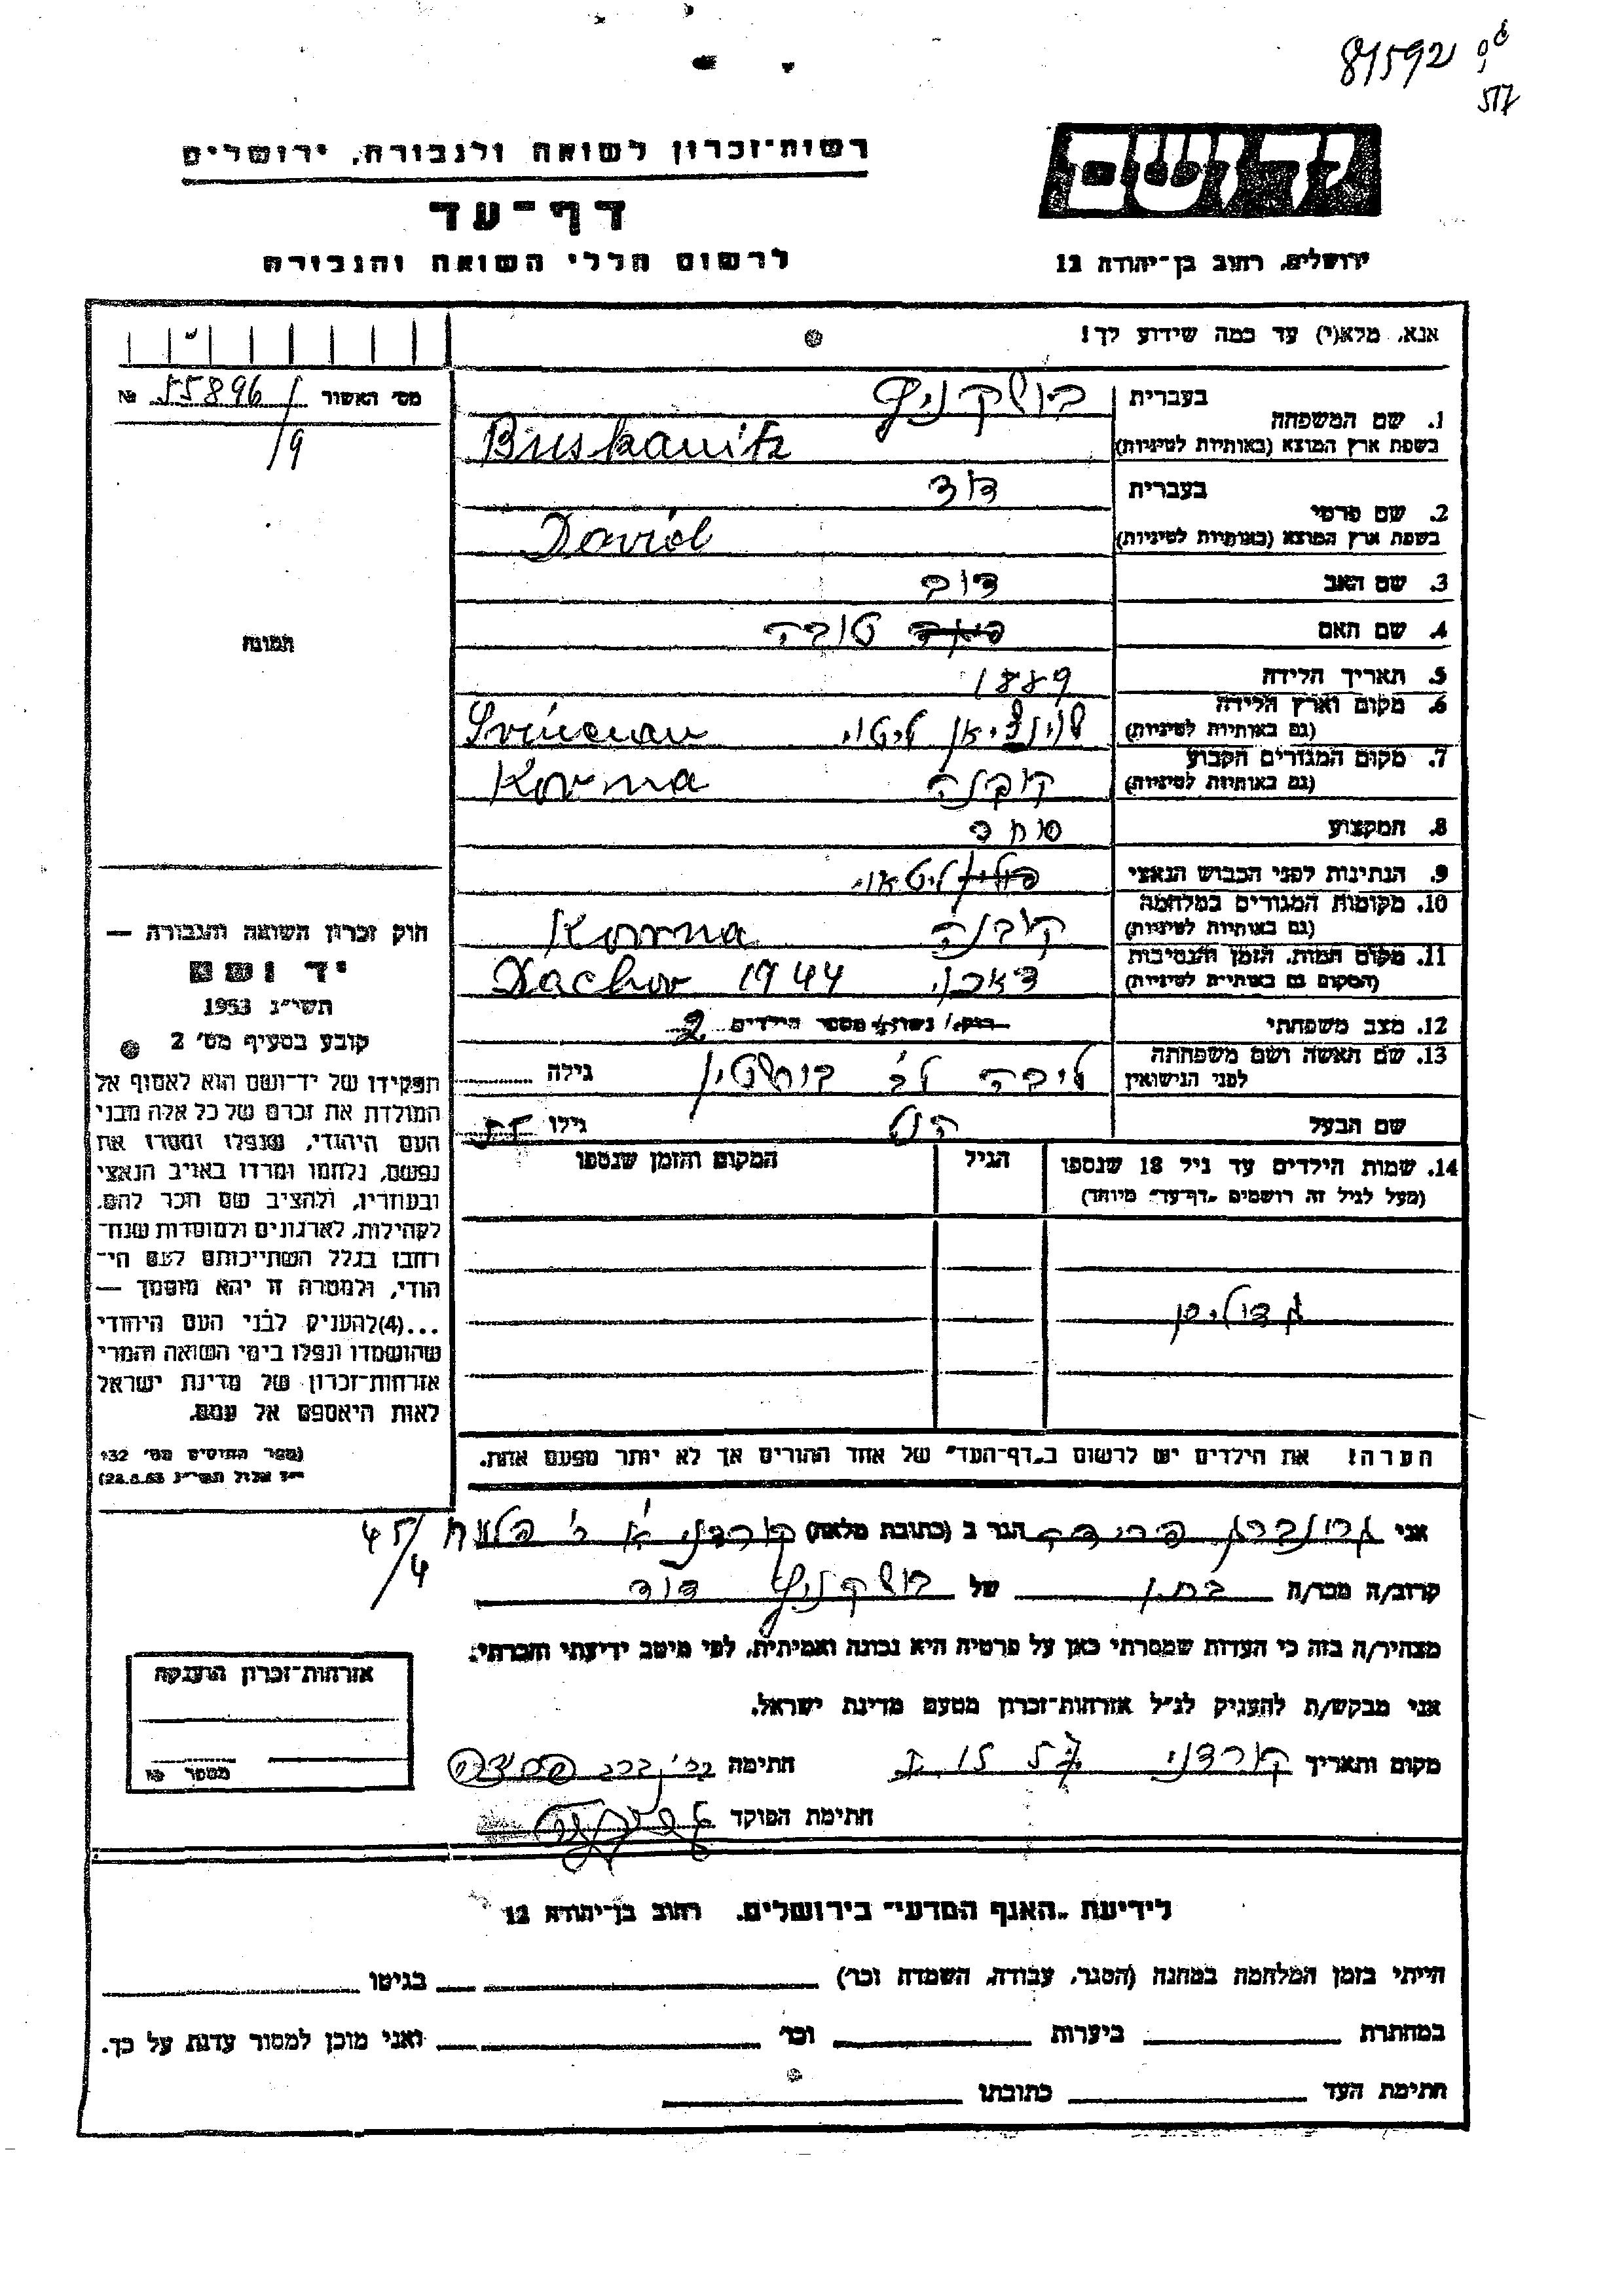 81592
517
רשות־זכרון לשואה ולגבורה, ירושלים
יד ושם
דף־עד
לרשום חללי השואה והגבורה
ירושלים, רחוב בן־יהודה 12
אנא, מלא(י) עד כמה שידוע לך!
מס׳ האשור 55896/ №
19
1. שם המשפחה
בעברית בושקניץ
בשפת ארץ המוצא (באותיות לטיניות) Buskanitz
2. שם פרטי
בעברית דוד
בשפת ארץ המוצא (באותיות לטיניות) David
3. שם האב דוב
4. שם האם טובה
5. תאריך הלידה 1889
6. מקום וארץ הלידה
(גם באותיות לטיניות) שוינציאן ליטוי
7. מקום המגורים הקבוע
(גם באותיות לטיניות) קובנה Kovna
8. המקצוע סוחר
9. הנתינות לפני הכבוש הנאצי ליטאי
10. מקומות המגורים במלחמה
(גם באותיות לטיניות) קובנה Kovna
11. מקום המות, הזמן והנסיבות
(המקום גם באותיות לטיניות) דאכוי 1944 Dachov
12. מצב משפחתי רוק/ נשוי/ מספר הילדים 2
13. שם האשה ושם משפחתה
לפני הנישואין ליבה לב׳ בוחשטין גילה
שם הבעל גילו 55
14. שמות הילדים עד גיל 18 שנספו
(מעל לגיל זה רושמים „דף־עד״ מיוחד)
הגיל
המקום והזמן שנספו
הערה! את הילדים יש לרשום ב„דף־העד״ של אחד ההורים אך לא יותר מפעם אחת.
תמונה
חוק זכרון השואה והגבורה —
יד ושם
תשי״ג 1953
קובע בסעיף מס׳ 2
תפקידו של יד־ושם הוא לאסוף אל
המולדת את זכרם של כל אלה מבני
העם היהודי, שנפלו ומסרו את
נפשם, נלחמו ומרדו באויב הנאצי
ובעוזריו, ולהציב שם וזכר להם,
לקהילות, לארגונים ולמוסדות שנח־
רבו בגלל השתייכותם לעם הי־
הודי, ולמטרה זו יהא מוסמך —
...(4)להעניק לבני העם היהודי
שהושמדו ונפלו בימי השואה והמרי
אזרחות־זכרון של מדינת ישראל
לאות היאספם אל עמם.
(ספר החוקים מס׳ 132
י״ז אלול תשי״ג 28.8.53)
אני גרונברג פרידה הגר ב (כתובת מלאה) קורדני א׳ 45/4
קרוב/ה מכר/ה של בושקניץ דוד
מצהיר/ה בזה כי העדות שמסרתי כאן על פרטיה היא נכונה ואמיתית, לפי מיטב ידיעתי והכרתי.
אני מבקש/ת להעניק לנ״ל אזרחות־זכרון מטעם מדינת ישראל.
מקום ותאריך קורדני חתימה
חתימת הפוקד
אזרחות־זכרון הוענקה
מספר
לידיעת „האגף המדעי״ בירושלים, רחוב בן־יהודה 12
הייתי בזמן המלחמה במחנה (הסגר, עבודה, השמדה וכו׳) בגיטו
במחתרת ביערות וכו׳ ואני מוכן למסור עדות על כך.
חתימת העד כתובתו